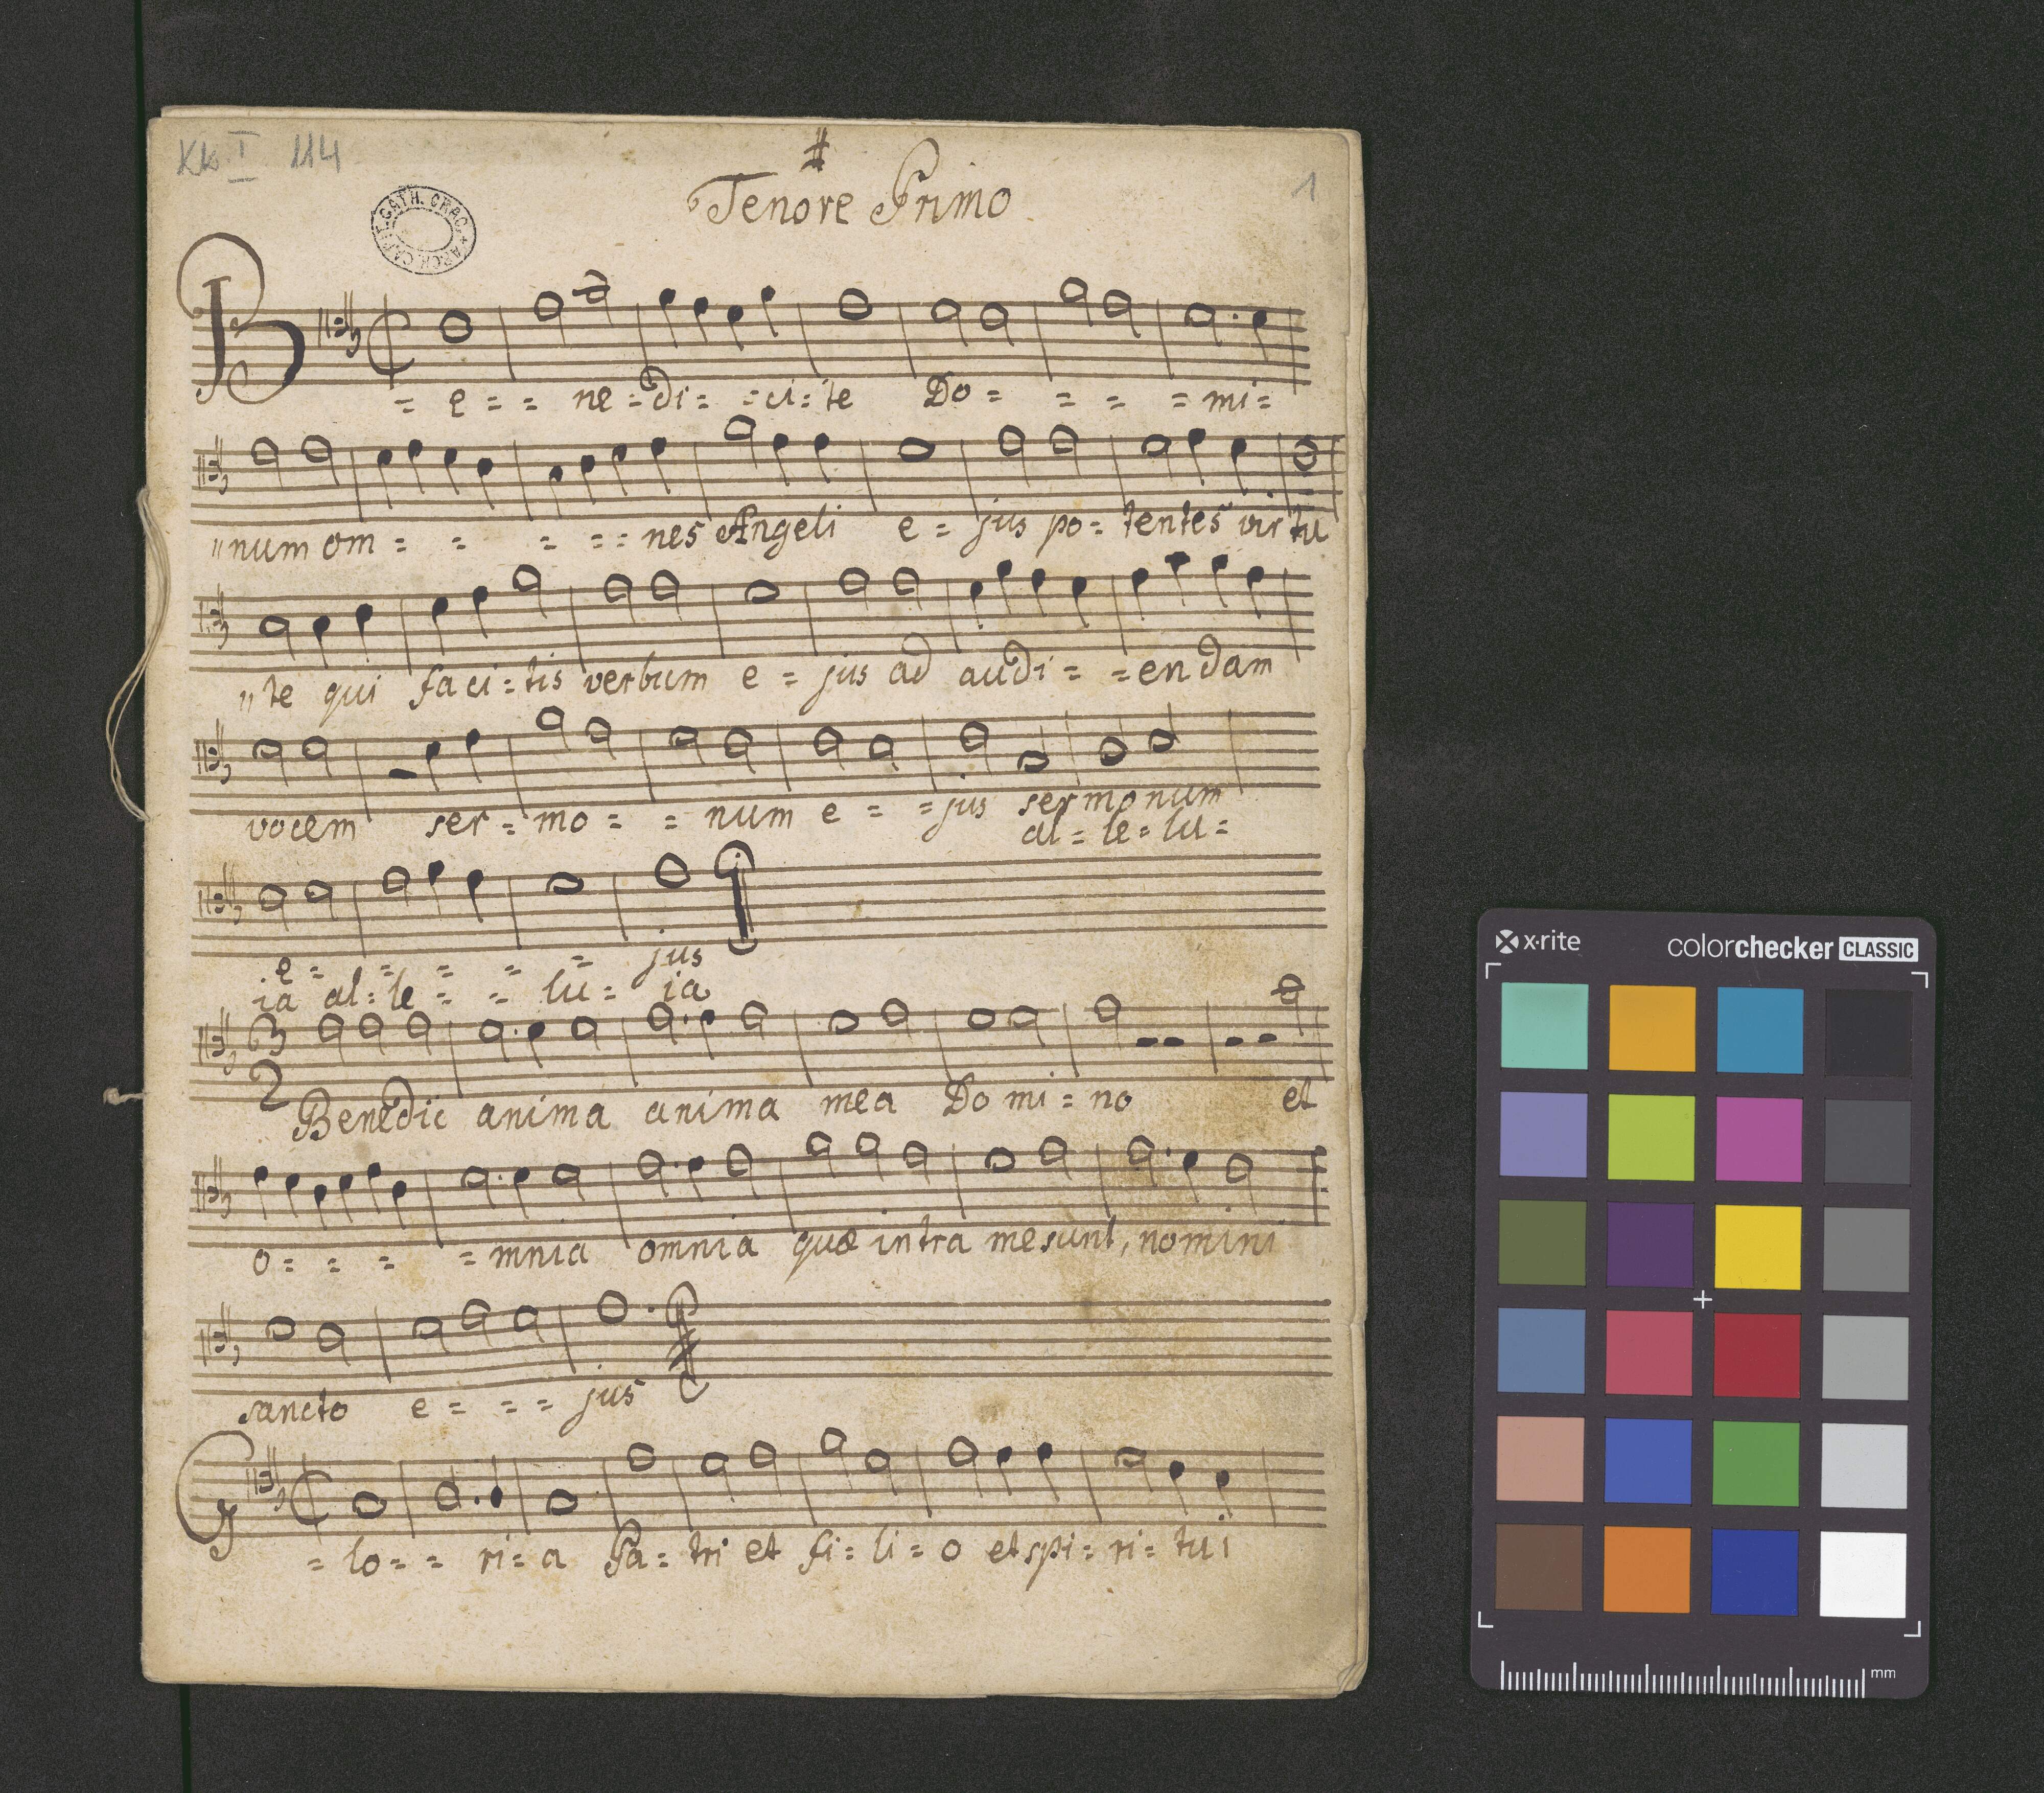 Kk I 114
1
Tenore Primo
ARCH. CAPIT. CATH. CRAC.
B = e = = ne = di = = ci = te Do = = = = mi =
"num om = = = = = nes Angeli e = jus po = tentes virtu
"te qui faci = tis verbum e = jus ad audi = = endam
vocem ser = mo = = num e = = jus sermonum
al = le = lu =
e = = = = = jus
ia al = le = = lu = ia
3
2
Benedic anima anima mea Domi = no et
o = = = = mnia omnia quæ intra me sunt, nomini
sancto e = = = jus
G = lo = = ri = a Pa = tri et fi = li = o et spi = ri = tui
x·rite colorchecker CLASSIC
mm